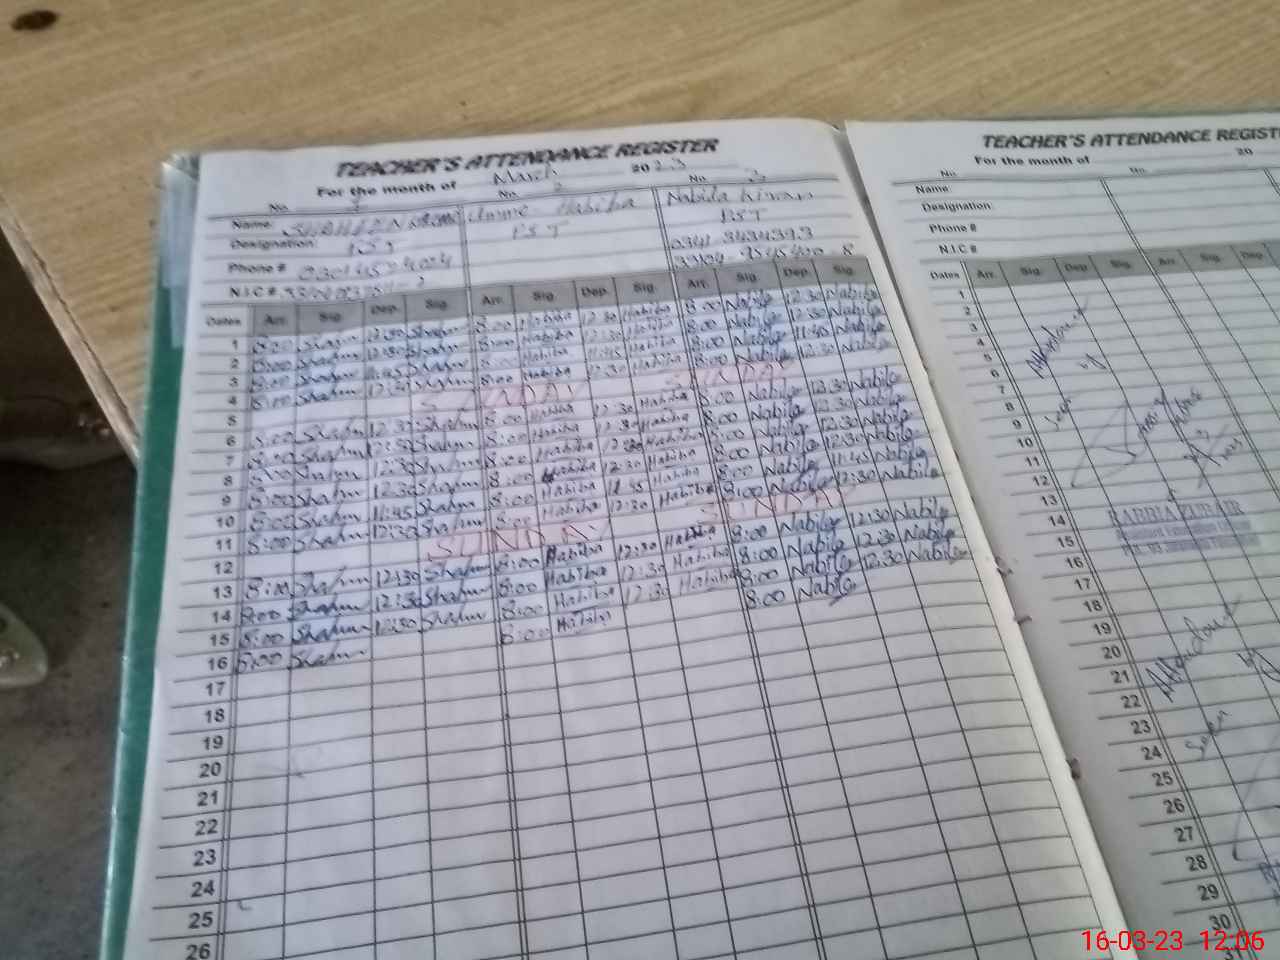 TEACHER'S ATTENDANCE REGISTER
For the month of March 2023
No. 1 No. 2 No. 3
Name: SHAHEEN Umme Habiba Nabila Kiran
Designation: PST PST PST
Phone # 0341 3434393
N.I.C #
Dates Arr. Sig. Dep. Sig. Arr. Sig. Dep. Sig. Arr. Sig. Dep. Sig.
1 8:00 Shahm 12:30 Shahm 8:00 Habiba 12:30 Habiba 8:00 Nabila 12:30 Nabila
2 8:00 Shahm 12:30 Shahm 8:00 Habiba 12:30 Habiba 8:00 Nabila 12:30 Nabila
3 8:00 Shahm 11:45 Shahm 8:00 Habiba 11:45 Habiba 8:00 Nabila 11:45 Nabila
4 8:00 Shahm 12:30 Shahm 8:00 Habiba 12:30 Habiba 8:00 Nabila 12:30 Nabila
5 SUNDAY SUNDAY
6 8:00 Shahm 12:30 Shahm 8:00 Habiba 12:30 Habiba 8:00 Nabila 12:30 Nabila
7 8:00 Shahm 12:30 Shahm 8:00 Habiba 12:30 Habiba 8:00 Nabila 12:30 Nabila
8 8:00 Shahm 12:30 Shahm 8:00 Habiba 12:30 Habiba 8:00 Nabila 12:30 Nabila
9 8:00 Shahm 12:30 Shahm 8:00 Habiba 12:30 Habiba 8:00 Nabila 12:30 Nabila
10 8:00 Shahm 11:45 Shahm 8:00 Habiba 11:45 Habiba 8:00 Nabila 11:45 Nabila
11 8:00 Shahm 12:30 Shahm 8:00 Habiba 12:30 Habiba 8:00 Nabila 12:30 Nabila
12 SUNDAY SUNDAY
13 8:00 Shahm 12:30 Shahm 8:00 Habiba 12:30 Habiba 8:00 Nabila 12:30 Nabila
14 8:00 Shahm 12:30 Shahm 8:00 Habiba 12:30 Habiba 8:00 Nabila 12:30 Nabila
15 8:00 Shahm 12:30 Shahm 8:00 Habiba 12:30 Habiba 8:00 Nabila 12:30 Nabila
16 8:00 Shahm 8:00 Habiba 8:00 Nabila
17
18
19
20
21
22
23
24
25
26
TEACHER'S ATTENDANCE REGIST
For the month of 20
No. No.
Name:
Designation:
Phone #
N.I.C #
Dates Arr. Sig. Dep. Sig. Arr. Sig. Dep.
1
2
3
4
5
6
7
8
9
10
11
12
13
14
15
16
17
18
19
20
21
22
23
24
25
26
27
28
29
30
31
Seen
RABBIA ZUBAIR
Seen
16-03-23 12:06